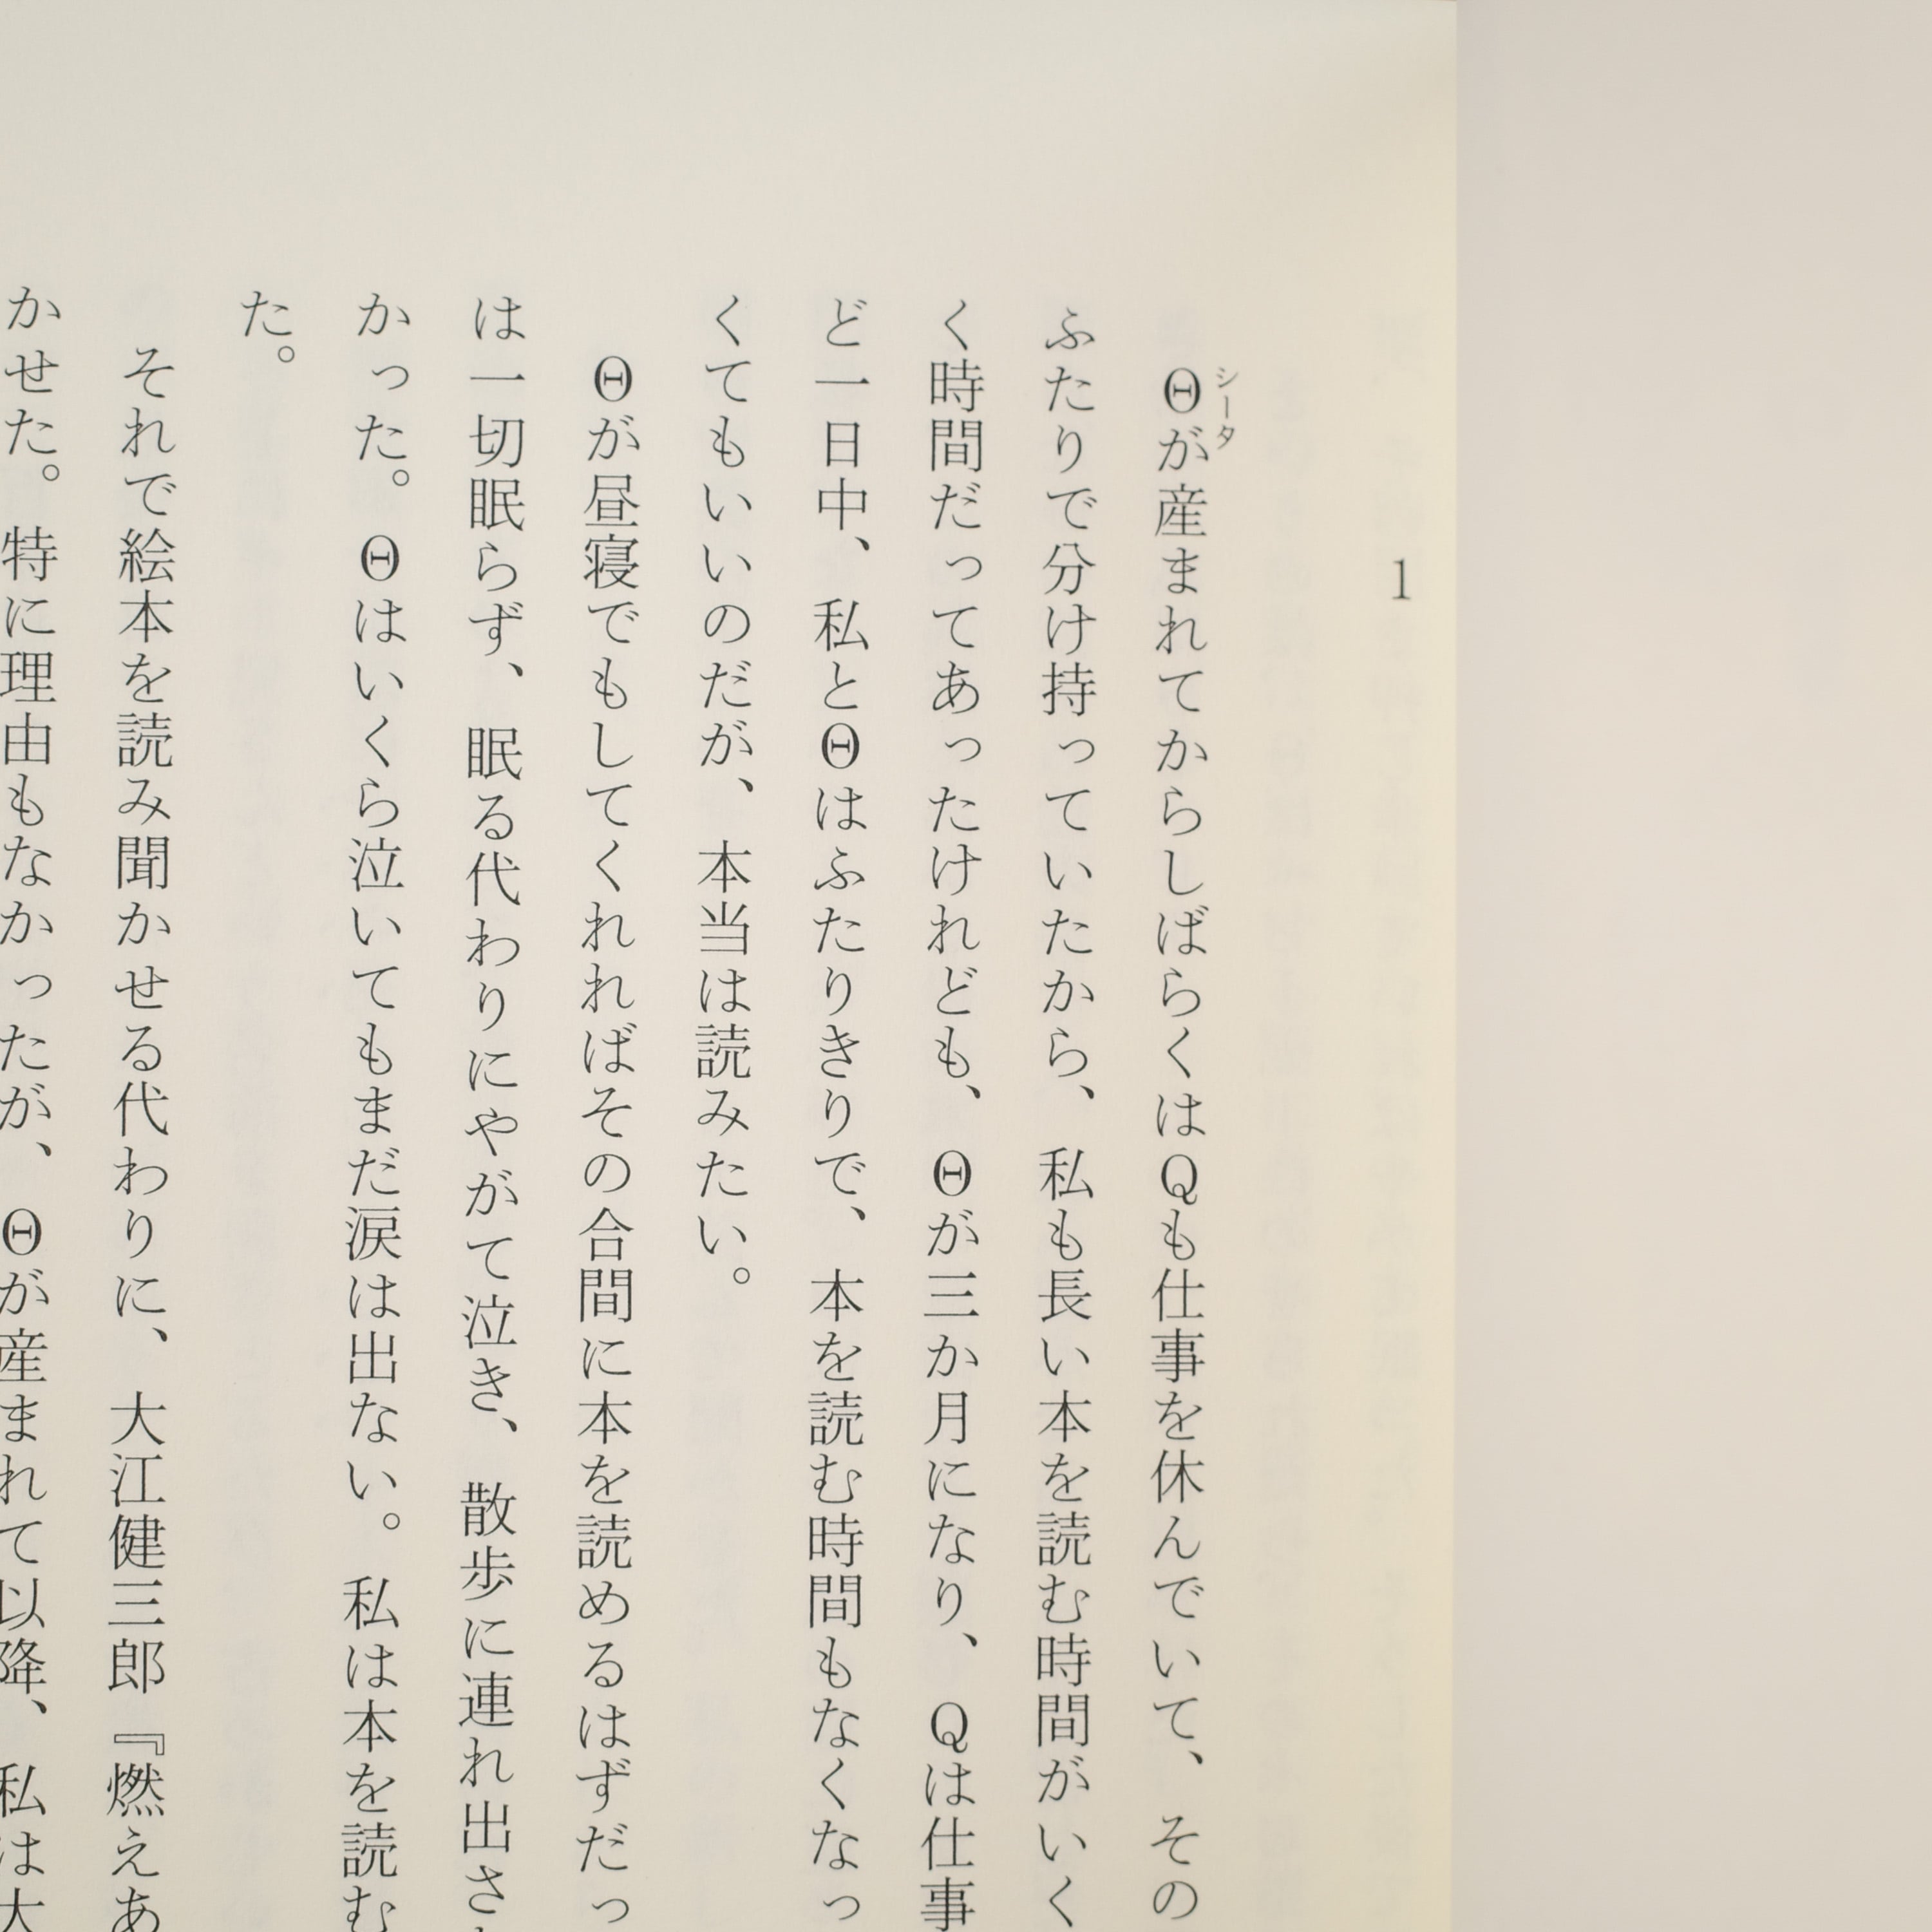 1
Θが産まれてからしばらくはQも仕事を休んでいて、その
シータ
ふたりで分け持っていたから、私も長い本を読む時間がいく
く時間だってあったけれども、Θが三か月になり、Qは仕事
ど一日中、私とΘはふたりきりで、本を読む時間もなくなっ
くてもいいのだが、本当は読みたい。
Θが昼寝でもしてくれればその合間に本を読めるはずだっ
は一切眠らず、眠る代わりにやがて泣き、散歩に連れ出さ
かった。Θはいくら泣いてもまだ涙は出ない。私は本を読む
た。
それで絵本を読み聞かせる代わりに、大江健三郎『燃えあ
かせた。特に理由もなかったが、Θが産まれて以降、私は大